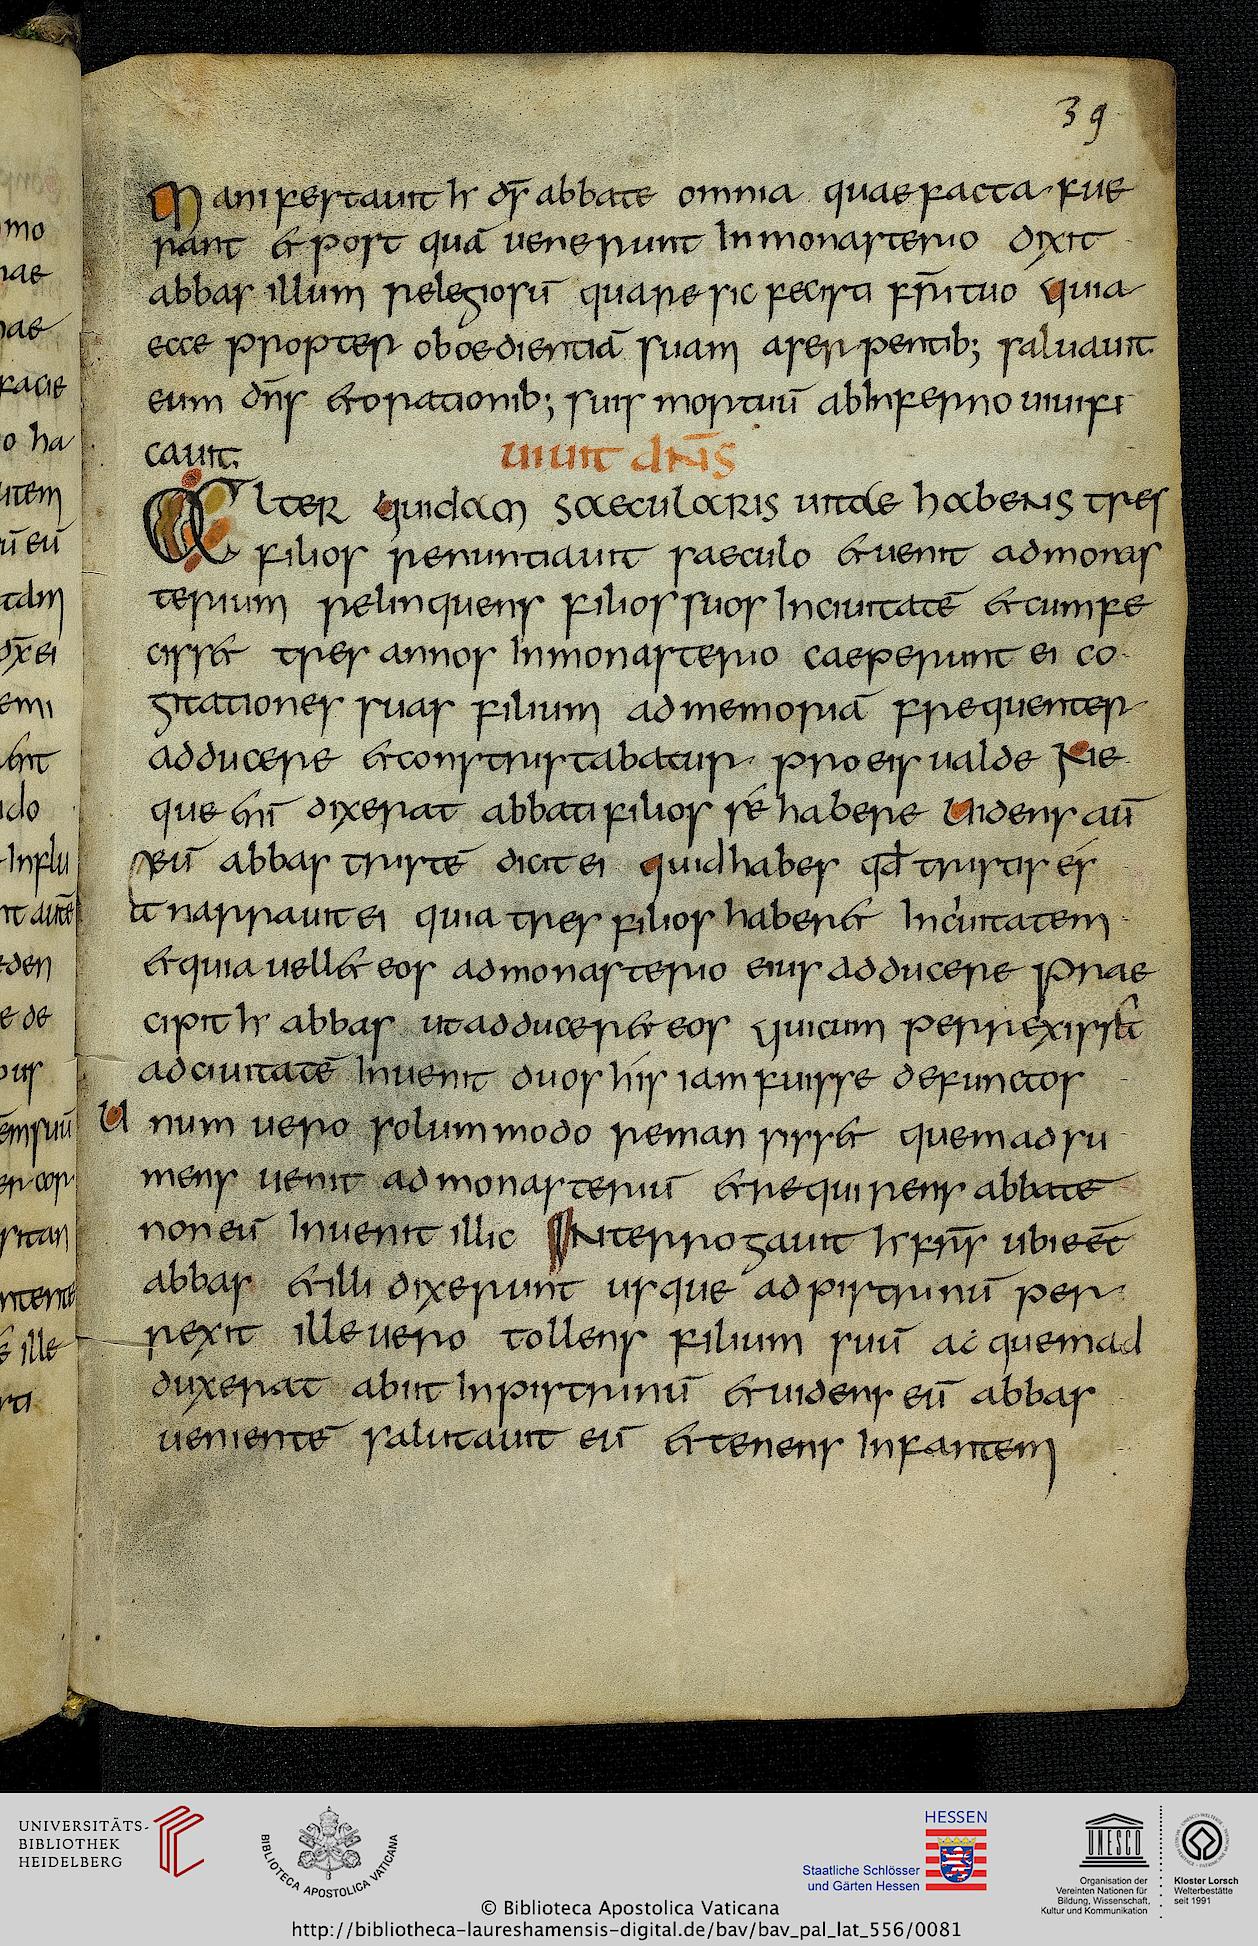 39
Manifestauit hr ds abbate omnia quae facta fue
rant & post quā uenerunt In monasterio dixit
abbas illum relegiosū quare sic fecisti fr̄i tuo Quia
ecce propter oboedientiā suam a serpentib; saluauit
eum dn̄s & orationib; suis mortuū ab Inferno uiuifi
cauit.
uiuit dN̄s
Alter quidam saecularis uitae habens tres
filios renuntiauit saeculo & uenit ad monas
terium relinquens filios suos In ciuitatē & cum fe
ciss& tres annos In monasterio caeperunt ei co
gitationes suas filium ad memoriā frequenter
adducere & constristabatur pro eis ualde Ne
que &nī dixerat abbati filios sē habere Uidens aū
eū abbas tristē dicit ei quid habes qd̄ tristis és
at narrauit ei quia tres filios haber& In ciuitatem
& quia uell& eos ad monasterio eius adducere Prae
cipit hr abbas ut adducer& eos Qui cum perrexiss&
ad ciuitatē Inuenit duos hís iam fuisse defunctos
Unum uero solummodo remansiss& quem adsu
mens uenit ad monasteriū & requirens abbate
non eū Inuenit illic INterrogauit hr fr̄s ubi eēt
abbas & illi dixerunt usque ad pistrinū per
rexit ille uero tollens filium suū ac quem ad
duxerat abiit In pistrinū & uidens eū abbas
uenientē salutauit eū & tenens Infantem
mo
nae
facie
o ha
utem
ū eū
emi
do
Influ
de
ille
UNIVERSITÄTS-
BIBLIOTHEK
HEIDELBERG
BIBLIOTECA APOSTOLICA VATICANA
HESSEN
Staatliche Schlösser
und Gärten Hessen
UNESCO
Organisation der
Vereinten Nationen für
Bildung, Wissenschaft,
Kultur und Kommunikation
Kloster Lorsch
Welterbestätte
seit 1991
© Biblioteca Apostolica Vaticana
http://bibliotheca-laureshamensis-digital.de/bav/bav_pal_lat_556/0081